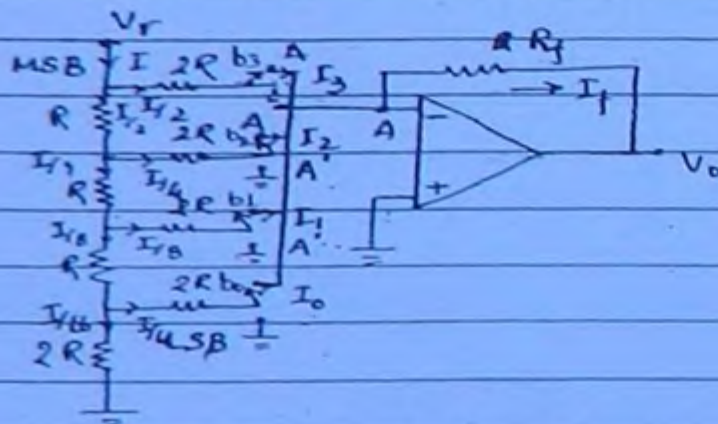 Vr
MSB I 2R b3 A I3 Rf
R I/2 I/2 A If
2R b2 I2 A −
I/4 A' Vo
R 2R b1 I1 +
I/8 I/8 A'
R 2R b0 I0
I/16 LSB
2R